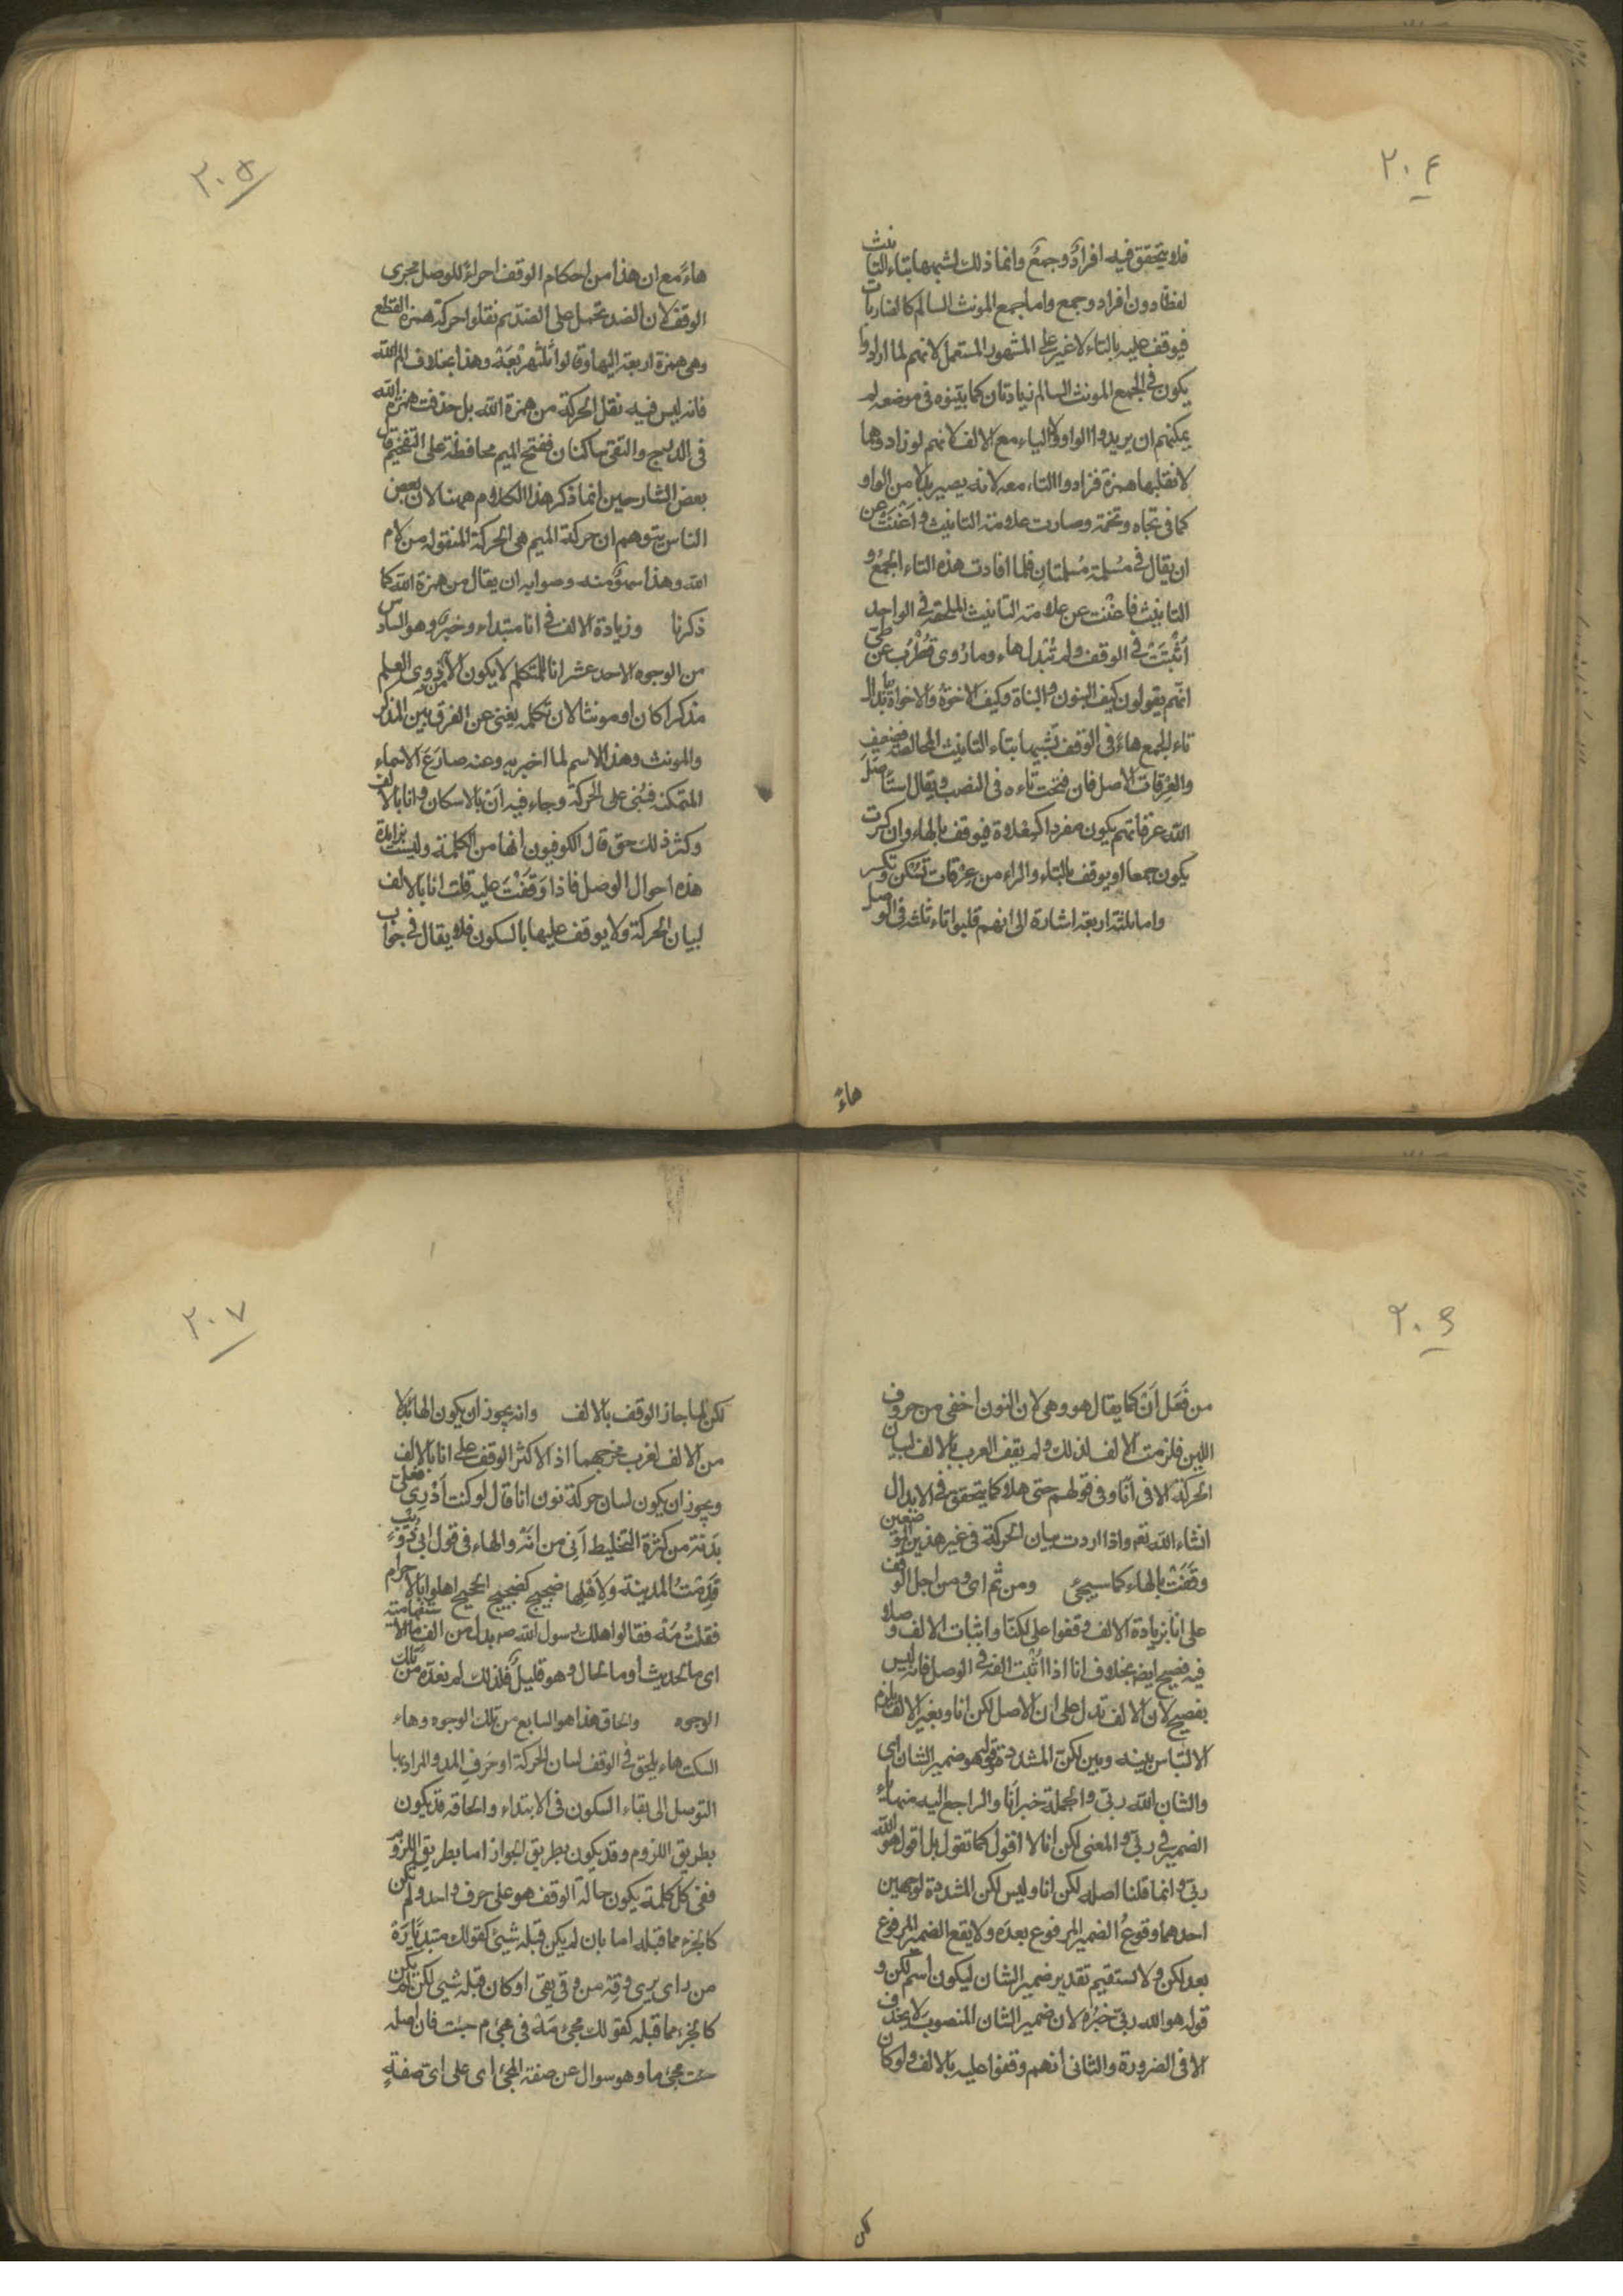 ٢٠٤
فلا يتحقق فيه افرادٌ وجمعٌ وانما ذلك لشبهها بتاء التانيث
لفظا دون افراد وجمع واما جمع المونث السالم كالضاربات
فيوقف عليه بالتاء لا غير على المشهور المستعمل لانهم لما ارادوا
يكون فى الجمع المونث السالم زيادتان كما بيّنوه فى موضعه لم
يمكنهم ان يريدوا الواو والياء مع الالف لانهم لو زادوهما
لانقلبها همزة فزادوا التاء معه لانه يصير بدلا من الواو
كما فى تجاه وتخمة وصارت علامة التانيث و اغنت عن
ان يقال فى مُسلمة مُسلمتان فلما افادت هذه التاء الجمع و
التانيث فاغنت عن علامة التانيث الملحقة فى الواحد
اُثبتَت فى الوقف ولم تُبدل هاء وما رُوى قُطْرُب عن طىّ
انّهم يقولون كيف البنون والبناة وكيف الاخوةُ والاخواة بابدال
تاء الجمع هاءً فى الوقف تشبيها بتاء التانيث الخالصة فضعيف
والعِرقات الاصل فان فتحت تاءه فى النصب ويقال استاصل
اللّه عرقاتهم يكون مفردا كسعلاة فيوقف بالهاء وان كسرت
يكون جمعا او يوقف بالتاء والراء من عِرْقات تسكن وتكسر
واما ثلثة اربعة اشارة الى انهم قلبوا تاء ثلثه فى الوصل
هاءً
٢٠٥
هاءً مع ان هذا من احكام الوقف اجراءً للوصل مجرى
الوقف لان الضد يحمل على الضد ثم نقلوا حركة همزة القطع
وهى همزة اربعة اليها وقالوا ثَلثَهَرْبَعَهْ وهذا بخلاف الم اللّه
فانه ليس فيه نقل الحركة من همزة اللّه بل حذفت همزة اللّه
فى الدرج والتقى ساكنان ففتح الميم محافظة على التفخيم قال
بعض الشارحين انما ذكر هذا الكلام ههنا لان بعض
الناس يتوهم ان حركة الميم هى الحركة المنقوله من لام
اللّه وهذا سهوٌ منه وصوابه ان يقال من همزة اللّه كما
ذكرنا وزيادة الالف فى انا مبتداء وخبرٌ وهو السادس
من الوجوه الاحد عشر انا للمتكلم لا يكون الا لذوى العلم
مذكرا كان او مونثا لان تكلمه يغنى عن الفرق بين المذكر
والمونث وهذا الاسم لما اخبر به وعنه ضارَعَ الاسماء
المتمكنة فبُنى على الحركة وجاء فيه اَنْ بالاسكان وانا بالالف
وكثر ذلك حتى قال الكوفيون انها من الكلمة وليست بزايدة
هذه احوال الوصل فاذا وَقَفْتَ عليه قلت انا بالالف
لبيان الحركة ولا يوقف عليها بالسكون فلا يقال فى جواب
٢٠٦
من فَعَل اَنْ كما يقال هو وهى لان النون اخفى من حروف
اللين فلزمت الالف لذلك ولم يقف العرب بالالف لبيان
الحركة الا فى انَا وفى قولهم حتى هلا كما يتحقق فى الابدال
انشاء اللّه تعم واذا اردت بيان الحركة فى غير هذين الموضعين
وقَفْتَ بالهاء كما سيجئ ومن ثم اى ومن اجل الوقف
على انا بزيادة الالف وقفوا على لكنّا واثبات الالف وصلا
فيه فصيح ايضا بخلاف انا اذا اُثبت الفه فى الوصل فانه ليس
بفصيح لان الالف تدل على ان الاصل لكن انا وبغير الالف يلزم
الالتباس بينه وبين لكنّ المشددة وقوله هو ضمير الشان اى
والشان اللّه ربّى والجملة خبر اَنا والراجع اليه منها ياء
الضمير فى ربّى والمعنى لكن انا لا اقول كما تقول بل اقول هو اللّه
ربّى وانما قلنا اصله لكن انا وليس لكن المشددة لوجهين
احدهما وقوعُ الضمير المرفوع بعدَه ولا يقع الضمير المرفوع
بعد لكن ولا يستقيم تقدير ضمير الشان ليكون اسم لكن و
قوله هو اللّه ربّى خبرُه لان ضمير الشان المنصوب لا يحذف
الا فى الضرورة والثانى انهم وقفوا عليه بالالف ولو كان
لكن
٢٠٧
لكن لما جاز الوقف بالالف وانه يجوز ان يكون الها بدلا
من الالف لقرب مخرجهما اذ الاكثر الوقف على انا بالالف
ويجوز ان يكون لبيان حركة نون انا قال لو كنت اَدْرِى فعلىّ
بَدَنة من كثرة التخليط اَنّى من انَهْ والهاء فى قول ابى ذُؤيب
قَدِمْتُ المدينة ولِاَهْلِها ضجيج كضجيج الحجيج اهلوا بالاحرام
فقلتُ مَهْ فقالوا هلك رسول اللّه صم بدل من الف ما الاستفهامية
اى ما الحديث او ما الحال وهو قليلٌ فلذلك لم نعدّه من تلك
الوجوه والحاق هذا هو السابع من تلك الوجوه وهاء
السكت هاء يلحق فى الوقف لبيان الحركة او حَرفِ المد والمراد بها
التوصل الى بقاء السكون فى الابتداء والحاقه قد يكون
بطريق اللزوم وقد يكون بطريق الجواز اما بطريق اللزوم
ففى كل كلمة يكون حالة الوقف هو على حرف واحد ولم يكن
كالجزء مما قبله اما بان لم يكن قبله شيئ كقولك مبتدِيًا رَهْ
من راى يرى وقِهْ من وقى يقى او كان قبله شيئ لكن لم يكن
كالجزء مما قبله كقولك مجئ مَهْ فى مجئ م جئت فان اصله
جئت مجئ ما وهو سوال عن صفة المجئ اى على اىّ صفةٍ